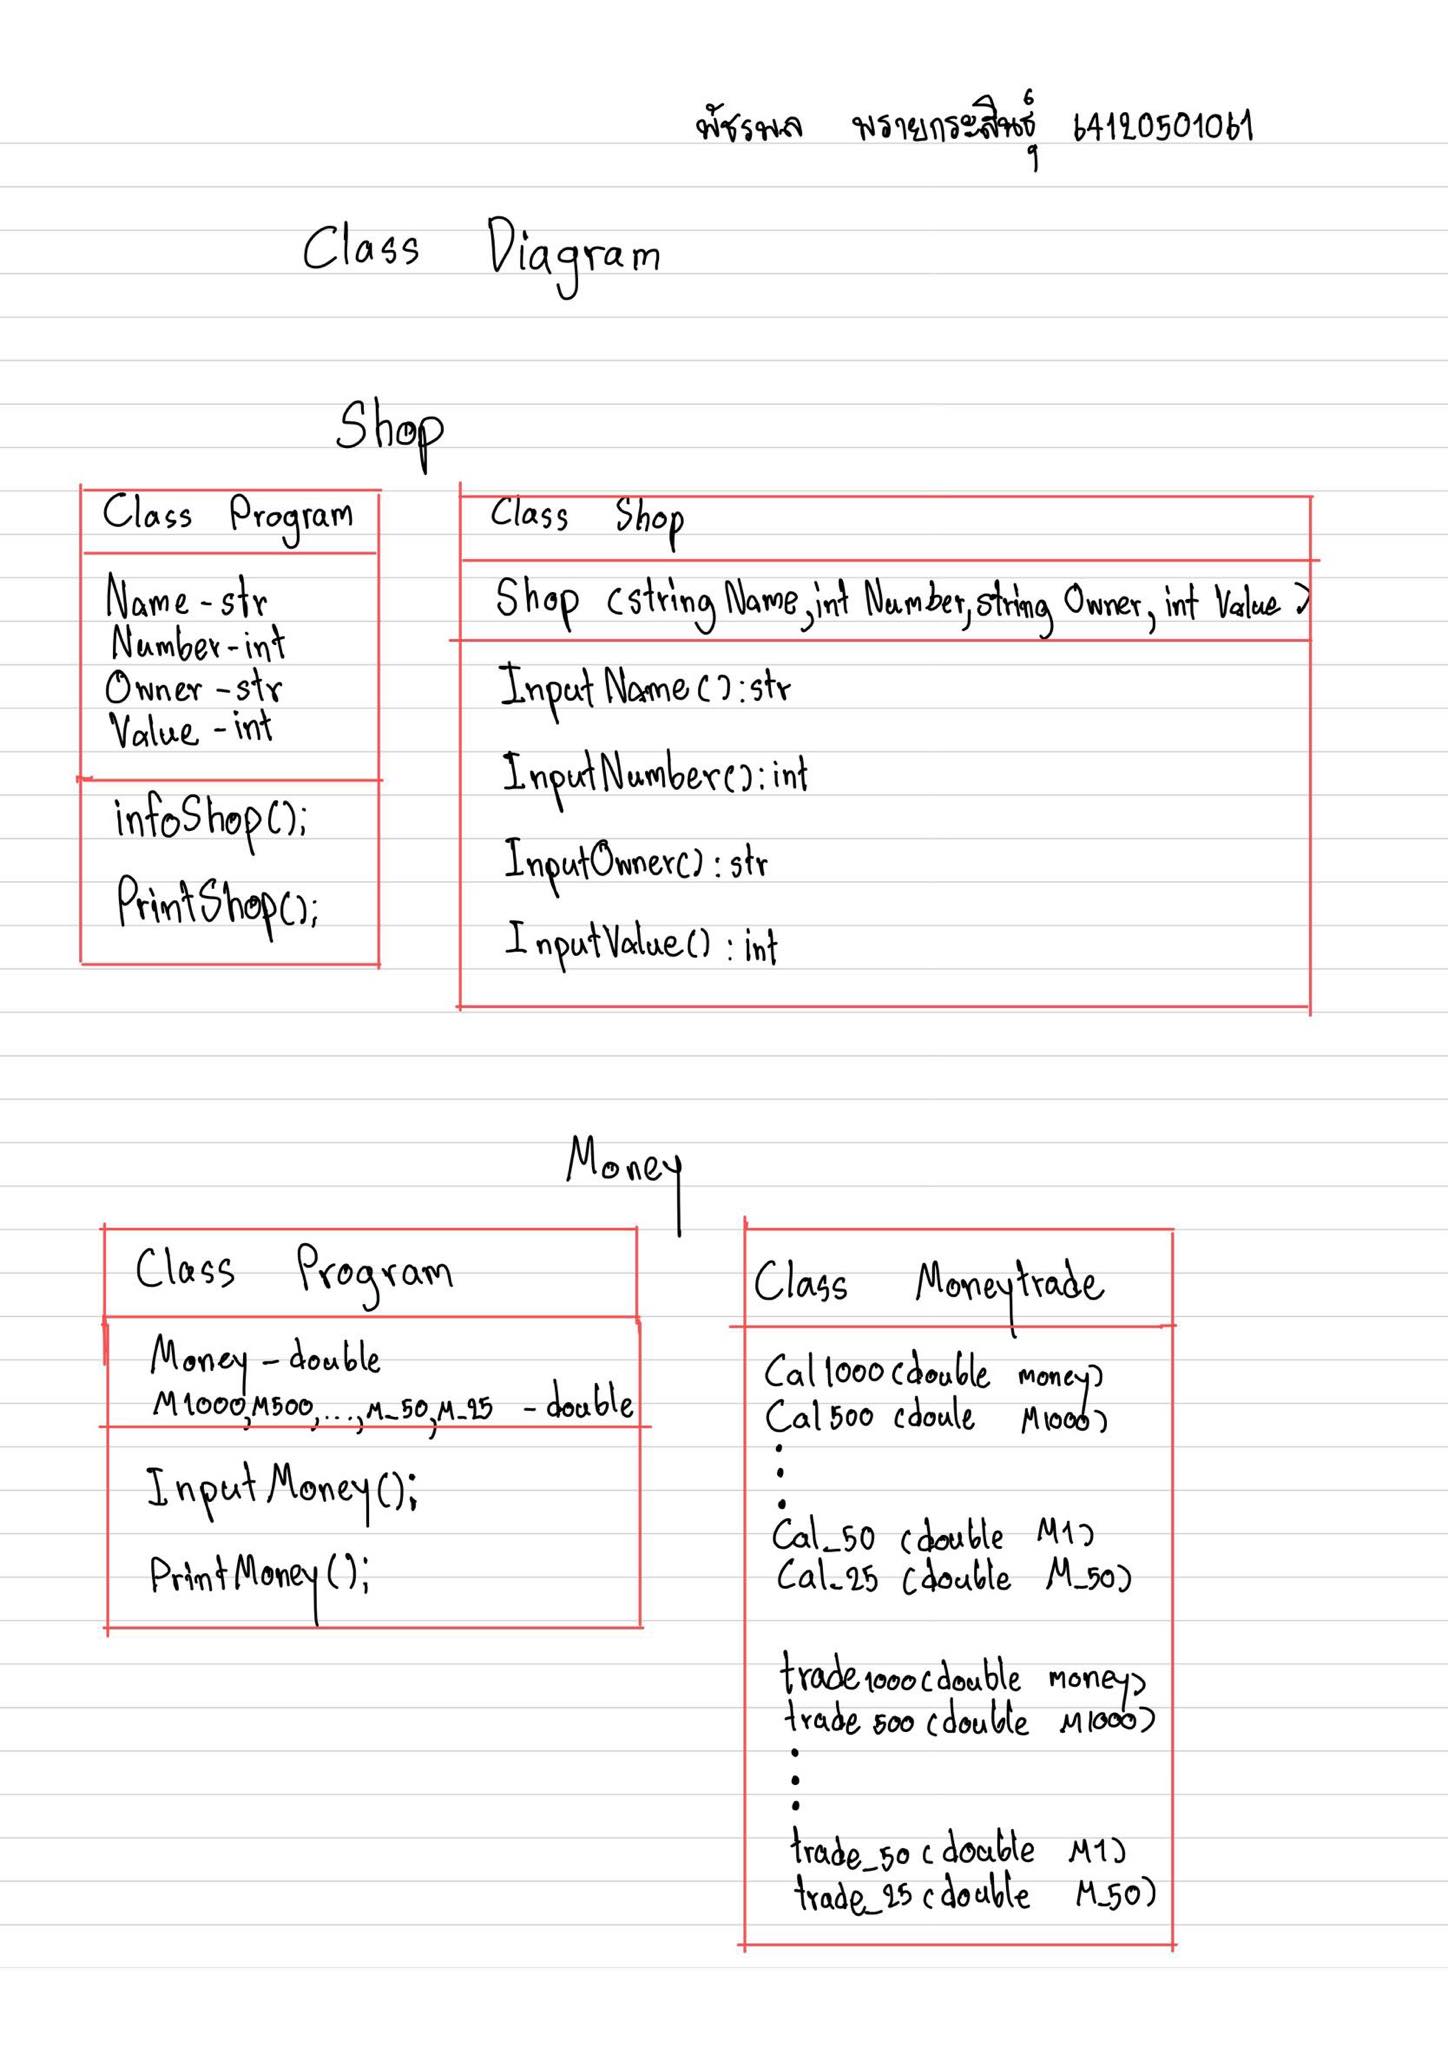 พัชรพล พรายกระสินธุ์ 64120501061
Class Diagram
Shop
Class Program
Name - str
Number - int
Owner - str
Value - int
infoShop();
PrintShop();
Class Shop
Shop (string Name, int Number, string Owner, int Value)
InputName() : str
InputNumber() : int
InputOwner() : str
InputValue() : int
Money
Class Program
Money - double
M1000, M500, ..., M_50, M_25 - double
InputMoney();
PrintMoney();
Class Moneytrade
Cal1000 (double money)
Cal500 (doule M1000)
.
.
.
Cal_50 (double M1)
Cal_25 (double M_50)
trade1000 (double money)
trade500 (double M1000)
.
.
.
trade_50 (double M1)
trade_25 (double M_50)